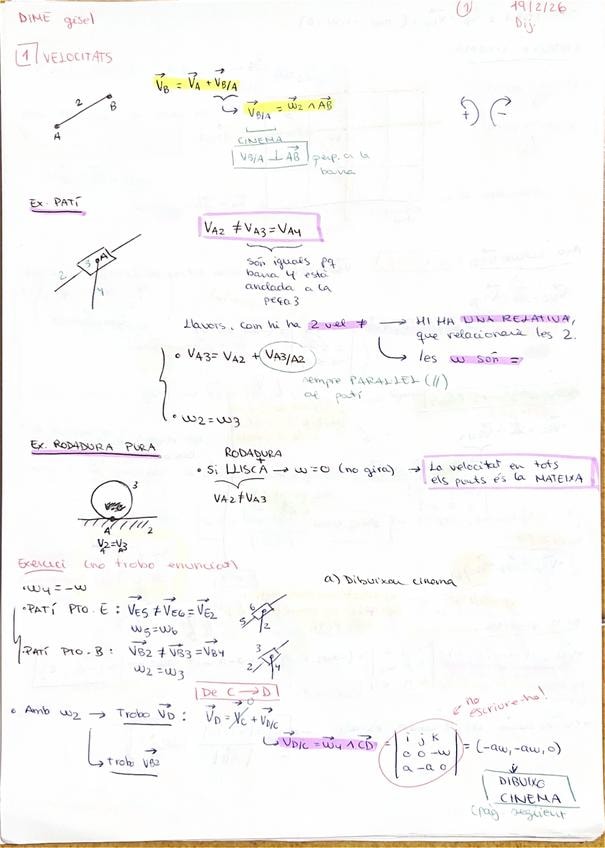 DIME gisel
① 19/2/26
Dij.
1 VELOCITATS
2
A
B
V_B = V_A + V_B/A
↳ V_B/A = ω2 ∧ AB
+ -
CINEMA
V_B/A ⊥ AB perp. a la
barra
Ex. PATÍ
3 A
2
4
V_A2 ≠ V_A3 = V_A4
són iguals pq
barra 4 està
anclada a la
peça 3
Llavors, com hi ha 2 vel ≠ → HI HA UNA RELATIVA,
que relacionarà les 2.
↳ les ω són =
• V_A3 = V_A2 + V_A3/A2
sempre PARAL·LEL (//)
al patí
• ω2 = ω3
Ex. RODADURA PURA
3
A 2
V2 = V3
A A
RODADURA
+
• Si LLISCA → ω=0 (no gira) → La velocitat en tots
els punts és la MATEIXA
V_A2 ≠ V_A3
Exercici (no trobo enunciat)
a) Dibuixau cinema
• ω4 = -ω
• PATÍ PTO. E: V_E5 ≠ V_E6 = V_E2
ω5 = ω6
6
5 2
• PATÍ PTO. B: V_B2 ≠ V_B3 = V_B4
ω2 = ω3
3
2 4
De C → D
• Amb ω2 → Trobo V_D: V_D = V_C + V_D/C
0
↳ trobo V_B2
↳ V_D/C = ω4 ∧ CD = | i j k
o o -ω
a -a o | = (-aω, -aω, 0)
no
escriure-ho!
DIBUIXO
CINEMA
(pàg següent